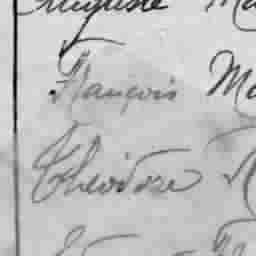 Auguste Ma
François Ma
Théodore